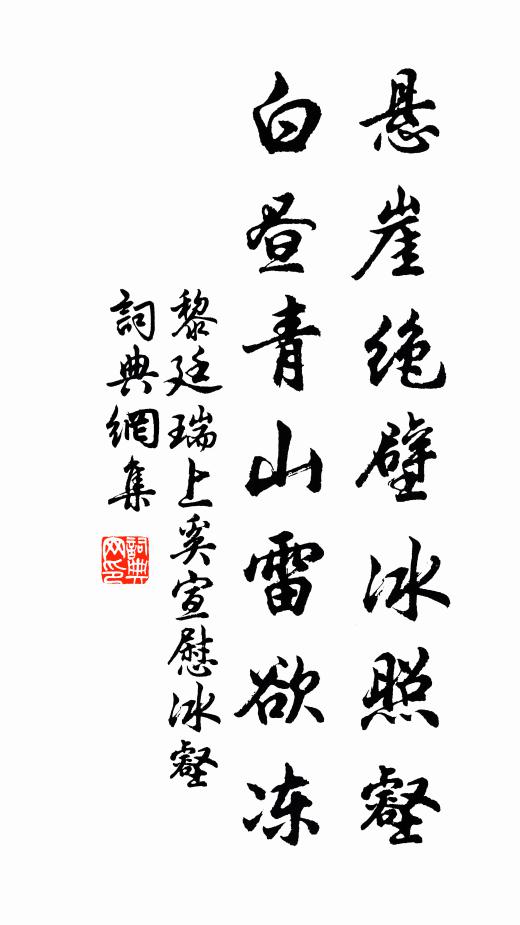 悬崖绝壁冰照壑
白昼青山雷欲冻
黎廷瑞上奚宣慰冰壑
詞典網集
詞典网印